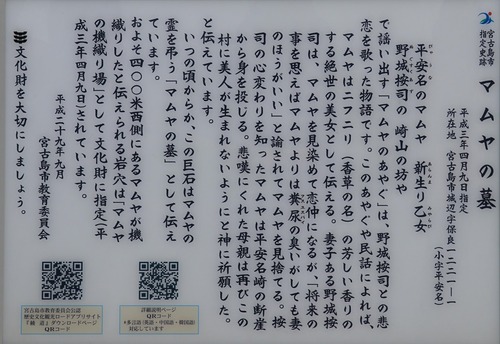 宮古島市
指定史跡
マムヤの墓
平成三年四月九日指定
所在地 宮古島市城辺字保良一二二一-一
(小字平安名)
平安名のマムヤ 新生り乙女
野城按司の 崎山の坊や
で謡い出す「マムヤのあやぐ」は、野城按司との悲
恋を歌った物語です。このあやぐや民話によれば、
マムヤはニフニリ(香草の名)の芳しい香りの
する絶世の美女として伝える。妻子ある野城按
司は、マムヤを見染めて恋仲になるが、「将来の
事を思えばマムヤよりは糞尿の臭いがしても妻
のほうがいい」と諭されてマムヤを見捨てる。按
司の心変わりを知ったマムヤは平安名崎の断崖
から身を投じる。悲嘆にくれた母親は再びこの
村に美人が生まれないようにと神に祈願した。
と伝えています。
いつの頃からか、この巨石はマムヤの
霊を弔う「マムヤの墓」として伝え
ています。
およそ四〇〇米西側にあるマムヤが機
織りしたと伝えられる岩穴は「マムヤ
の機織り場」として文化財に指定(平
成三年四月九日)されています。
平成二十九年九月
宮古島市教育委員会
文化財を大切にしましょう。
宮古島市教育委員会公認
歴史文化観光ロードアプリサイト
『綾道』ダウンロードページ
QRコード
詳細説明ページ
QRコード
*多言語(英語・中国語・韓国語)
対応しています